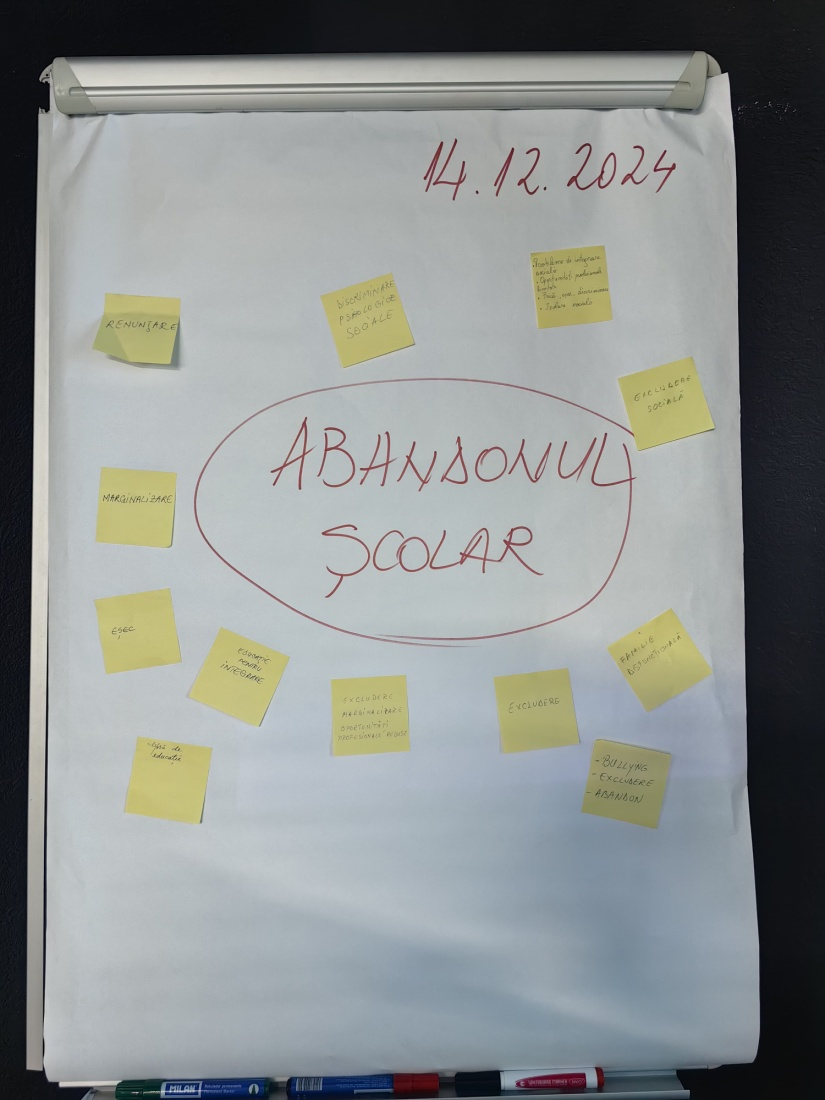 14.12.2024
RENUNȚARE
DISCRIMINARE
PSIHOLOGICE
SOCIALE
• Probleme de integrare
socială
• Oportunități profesionale
limitate
• discriminarea
• Izolare socială
EXCLUDERE
SOCIALĂ
ABANDONUL
ȘCOLAR
MARGINALIZARE
EȘEC
EDUCAȚIE
PENTRU
INTEGRARE
EXCLUDERE
MARGINALIZARE
OPORTUNITĂȚI
PROFESIONALE REDUSE
EXCLUDERE
FAMILIE
DISFUNCȚIONALĂ
- lipsă de
educație
- BULLYNG
- EXCLUDERE
- ABANDON
MILAN